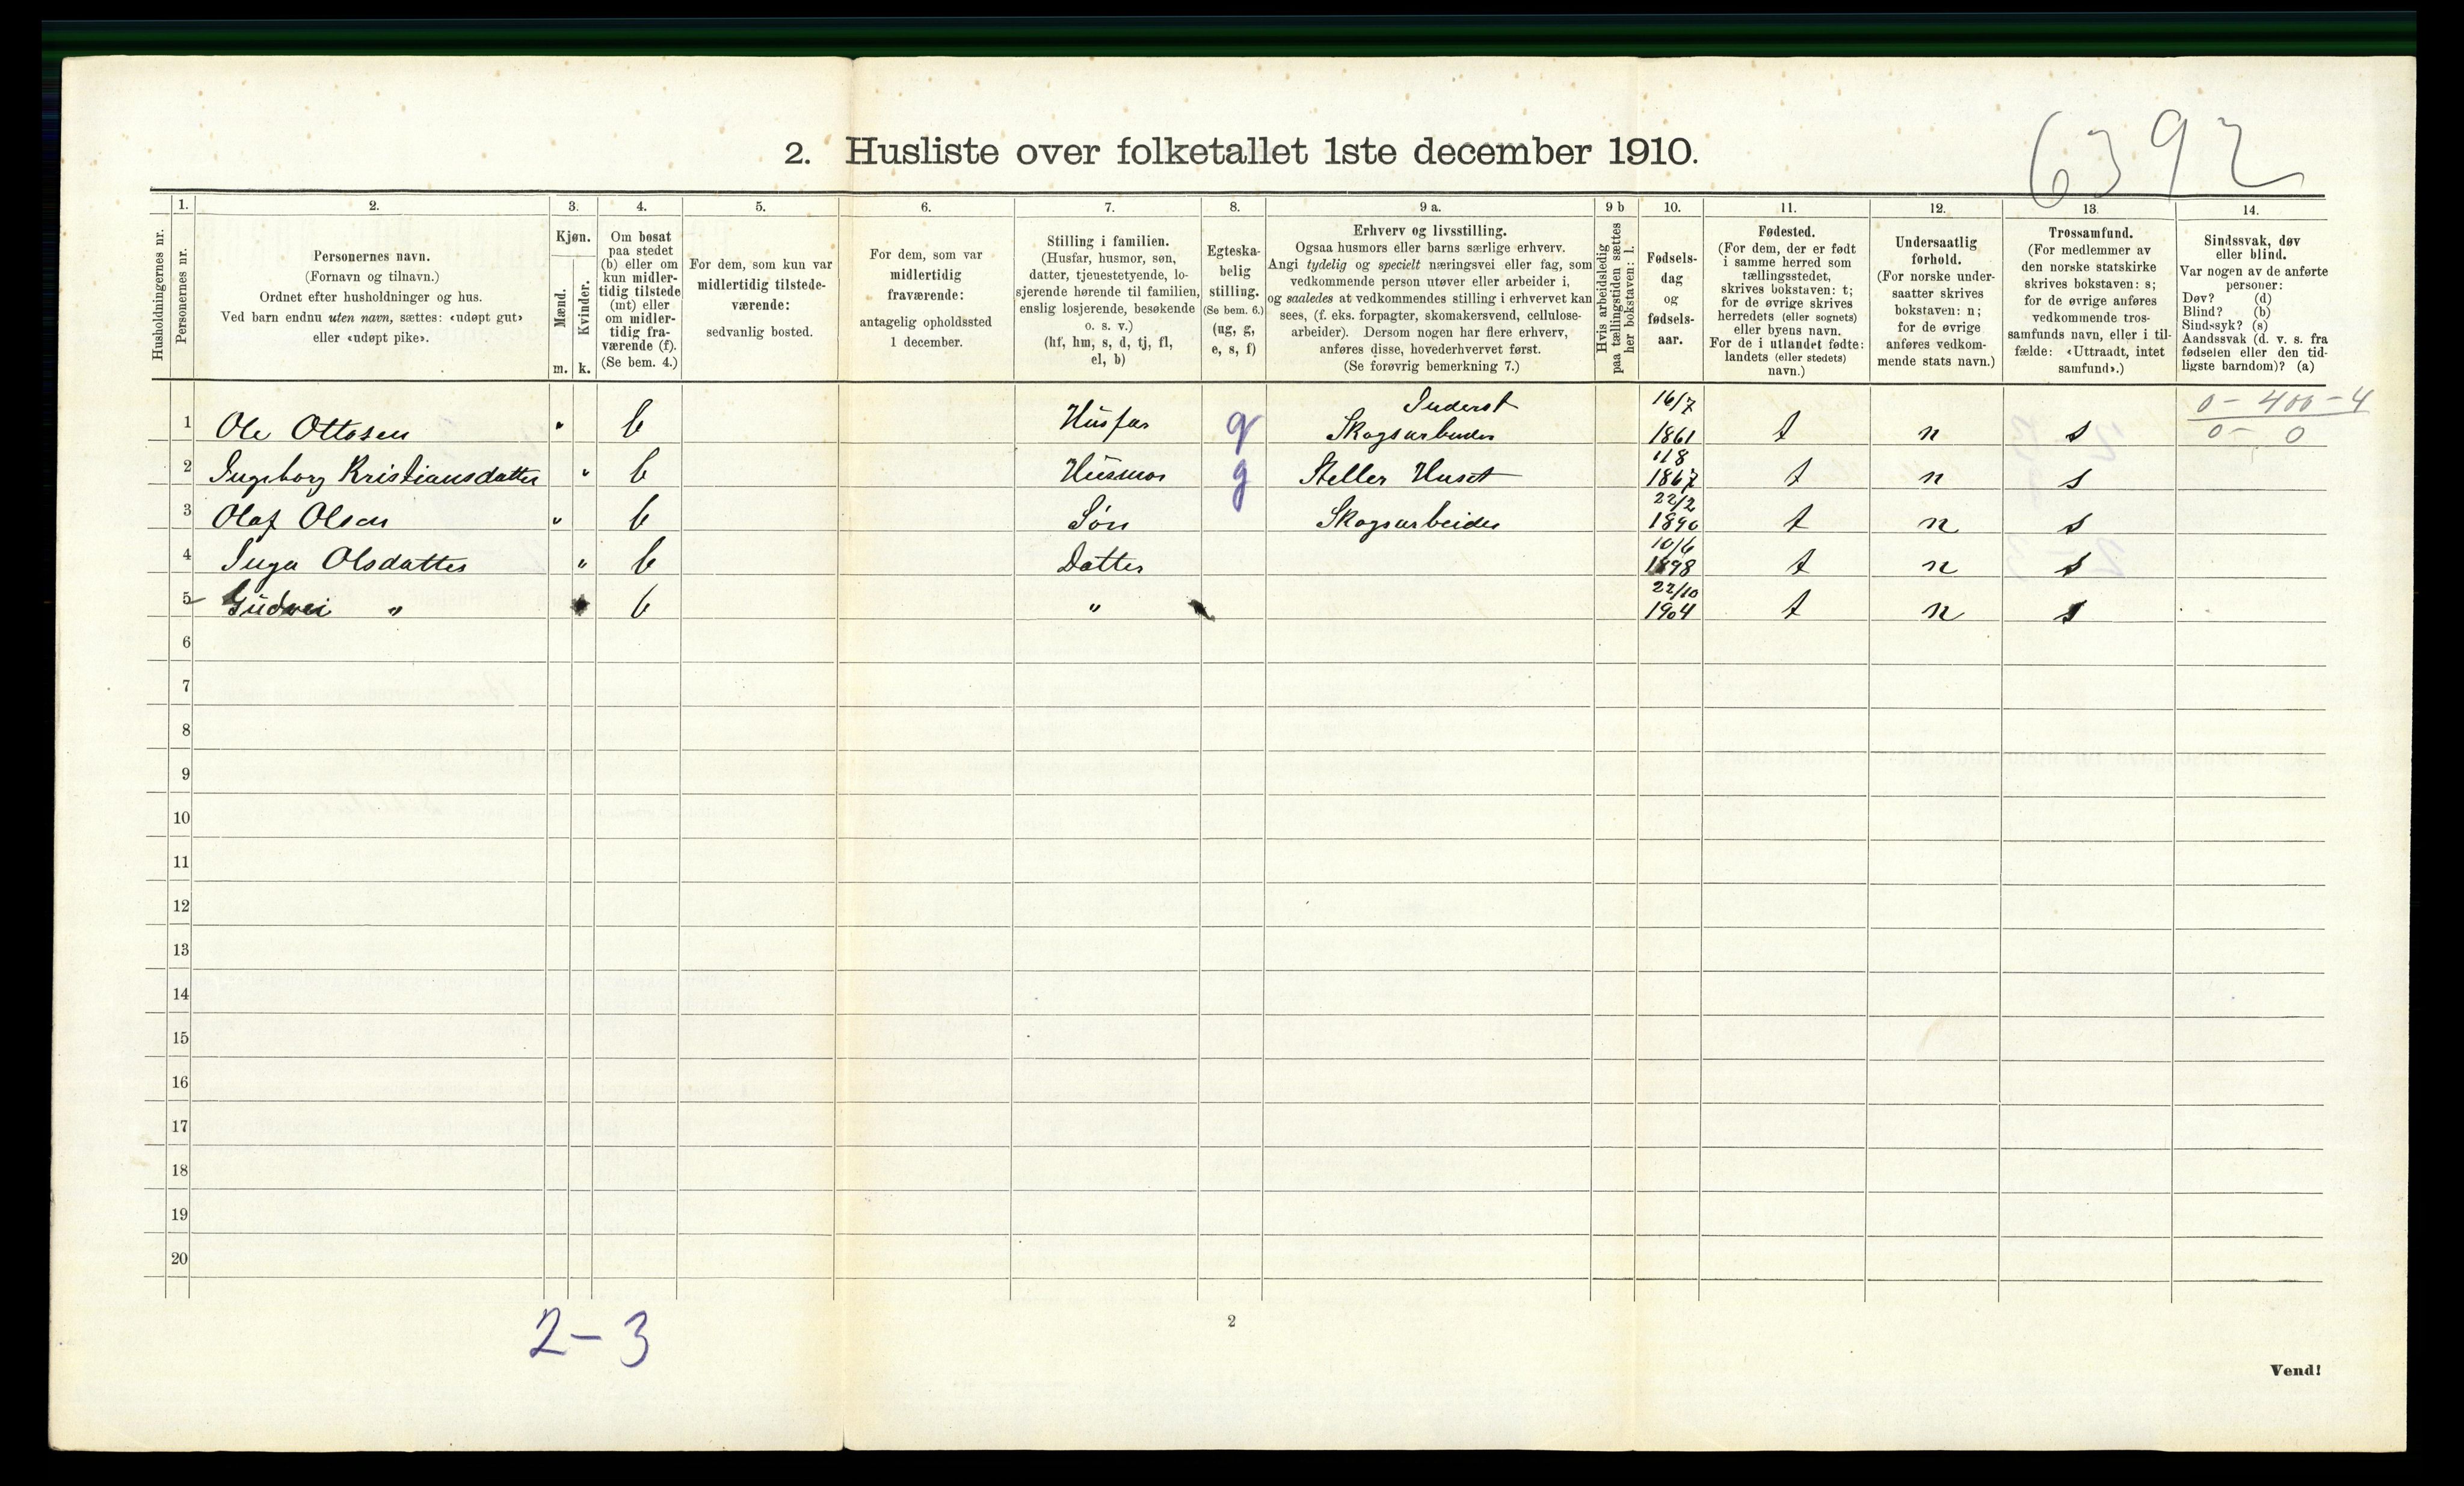 6392
2. Husliste over folketallet 1ste december 1910.
Husholdningernes nr.
1.
Personernes nr.
2.
Personernes navn.
(Fornavn og tilnavn.)
Ordnet efter husholdninger og hus.
Ved barn endnu uten navn, sættes: «udøpt gut»
eller «udøpt pike».
3.
Kjøn.
Mænd.
Kvinder.
m. k.
4.
Om bosat
paa stedet
(b) eller om
kun midler-
tidig tilstede
(mt) eller
om midler-
tidig fra-
værende (f).
(Se bem. 4.)
5.
For dem, som kun var
midlertidig tilstede-
værende:
sedvanlig bosted.
6.
For dem, som var
midlertidig
fraværende:
antagelig opholdssted
1 december.
7.
Stilling i familien.
(Husfar, husmor, søn,
datter, tjenestetyende, lo-
sjerende hørende til familien,
enslig losjerende, besøkende
o. s. v.)
(hf, hm, s, d, tj, fl,
el, b)
8.
Egteska-
belig
stilling.
(Se bem. 6.)
(ug, g,
e, s, f)
9 a.
Erhverv og livsstilling.
Ogsaa husmors eller barns særlige erhverv.
Angi tydelig og specielt næringsvei eller fag, som
vedkommende person utøver eller arbeider i,
og saaledes at vedkommendes stilling i erhvervet kan
sees, (f. eks. forpagter, skomakersvend, cellulose-
arbeider). Dersom nogen har flere erhverv,
anføres disse, hovederhvervet først.
(Se forøvrig bemerkning 7.)
9 b
Hvis arbeidsledig
paa tællingstiden sættes
her bokstaven: l.
10.
Fødsels-
dag
og
fødsels-
aar.
11.
Fødested.
(For dem, der er født
i samme herred som
tællingsstedet,
skrives bokstaven: t;
for de øvrige skrives
herredets (eller sognets)
eller byens navn.
For de i utlandet fødte:
landets (eller stedets)
navn.)
12.
Undersaatlig
forhold.
(For norske under-
saatter skrives
bokstaven: n;
for de øvrige
anføres vedkom-
mende stats navn.)
13.
Trossamfund.
(For medlemmer av
den norske statskirke
skrives bokstaven: s;
for de øvrige anføres
vedkommende tros-
samfunds navn, eller i til-
fælde: «Uttraadt, intet
samfund».)
14.
Sindssvak, døv
eller blind.
Var nogen av de anførte
personer:
Døv? (d)
Blind? (b)
Sindssyk? (s)
Aandssvak (d. v. s. fra
fødselen eller den tid-
ligste barndom)? (a)
Inderst 16/7 0 - 400 - 4
1 Ole Ottosen " b Husfar g Skogsarbeider 1861 t n s 0 - 0
2 Ingeborg Kristiansdatter " b Husmor g Steller Huset 11/8 1867 t n s
3 Olaf Olsen " b Søn Skogsarbeider 22/2 1890 t n s
4 Inga Olsdatter " b Datter 10/6 1898 t n s
5 Gudvei " b " 22/10 1904 t n s
6
7
8
9
10
11
12
13
14
15
16
17
18
19
20
2 - 3
2
Vend!